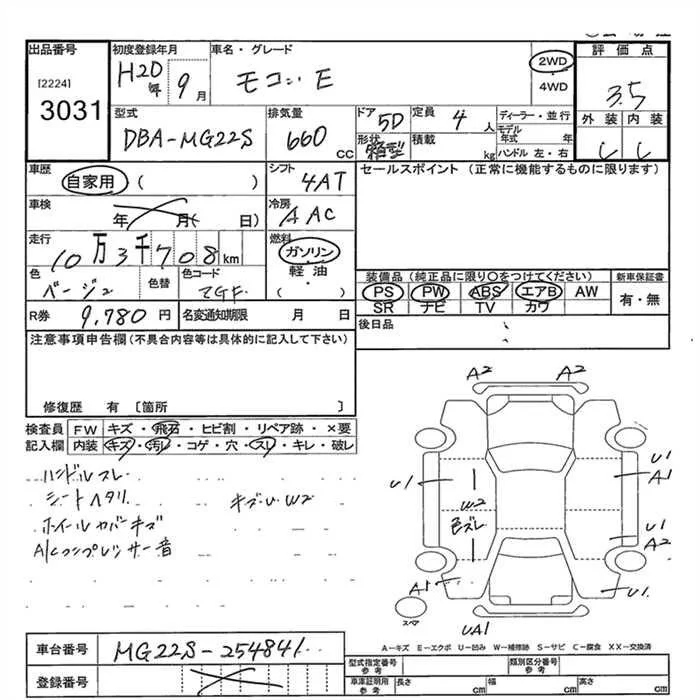 出品番号
[2224]
3031
初度登録年月
H20年 9月
車名・グレード
モコ E
2WD
・
4WD
評価点
3.5
外装 内装
型式
DBA-MG22S
排気量
660 CC
ドア 5D
形状 箱型
定員 4 人
積載 kg
ディーラー・並行
モデル年式 年
ハンドル 左・右
車歴
自家用 ( )
シフト
4AT
セールスポイント (正常に機能するものに限ります)
車検
年 月( 日)
冷房
AAC
走行
10万3千708km
燃料
ガソリン
軽油
( )
色
ベージュ
色替
色コード
ZGF
装備品 (純正品に限り〇をつけてください)
新車保証書
PS PW ABS エアB AW
SR ナビ TV カワ
有・無
R券 9,780 円
名変通知期限 月 日
後日品
注意事項申告欄(不具合内容等は具体的に記入して下さい)
修復歴 有 〔箇所 〕
検査員記入欄
FW キズ・飛石・ヒビ割・リペア跡・×要
内装 キズ・汚レ・コゲ・穴・スレ・キレ・破レ
ハンドルスレ
シートヘタリ
キズ・U W2
ホイールカバーキズ
A/Cコンプレッサー音
A2 A2
U1
U1
A1
W2
色ズレ
U1
A2
A1
U1
スペア
UA1
A－キズ E－エクボ U－凹み W－補修跡 S－サビ C－腐食 XX－交換済
車台番号 MG22S-254841
登録番号
型式指定番号 参考
類別区分番号 参考
車庫証明用 参考
長さ cm
幅 cm
高さ cm